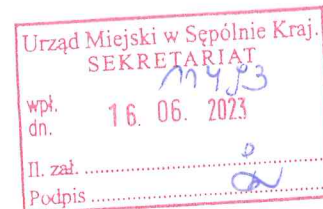 Urząd Miejski w Sępólnie Kraj.
SEKRETARIAT
11493
wpł.
dn. 16. 06. 2023
Il. zał. ........................
Podpis ........................